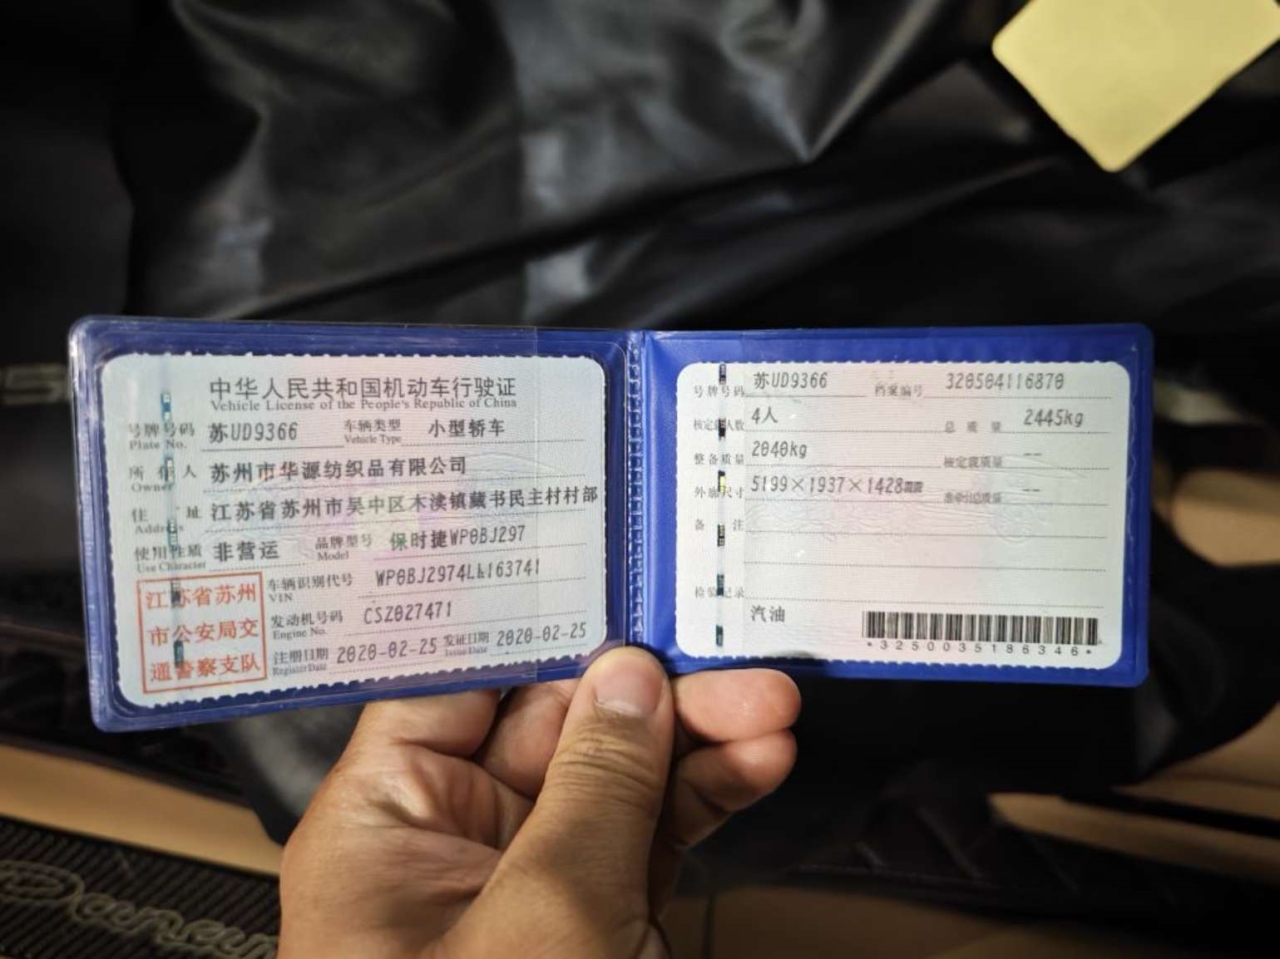 中华人民共和国机动车行驶证
Vehicle License of the People's Republic of China
号牌号码 苏UD9366 车辆类型 小型轿车
Plate No. Vehicle Type
所有人 苏州市华源纺织品有限公司
Owner
住址 江苏省苏州市吴中区木渎镇藏书民主村村部
Address
使用性质 非营运 品牌型号 保时捷WP0BJ297
Use Character Model
江苏省苏州
市公安局交
通警察支队
车辆识别代号
VIN
发动机号码 CSZ027471
Engine No.
注册日期 2020-02-25 发证日期 2020-02-25
Register Date Issue Date
号牌号码 苏UD9366 档案编号 320504116870
核定载人数 4人 总质量 2445kg
整备质量 2040kg 核定载质量 --
外廓尺寸 5199×1937×1428 准牵引总质量 --
备注
检验记录
汽油
*3250035186346*